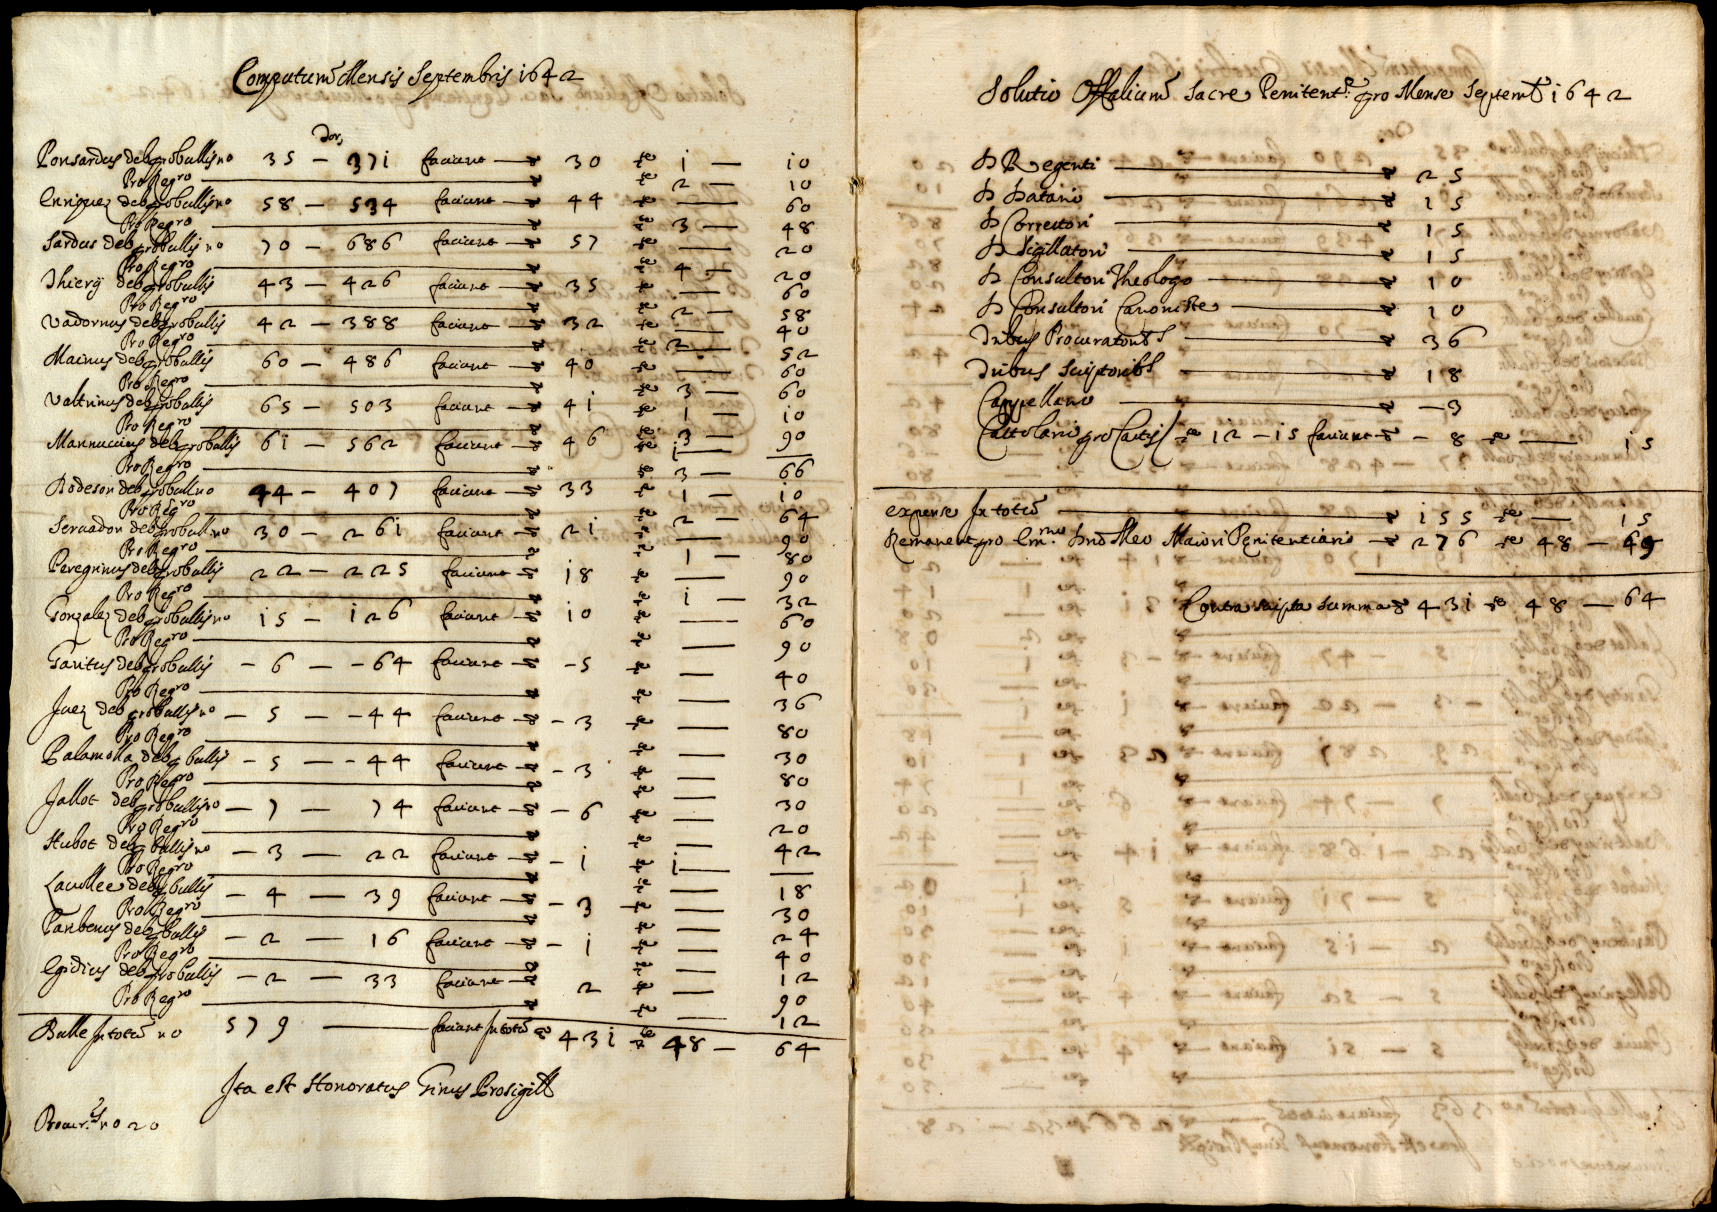 Computum Mensis Septembris 1642
Ponsardus deb. pro bullis no 35 – 371 faciunt — 30 — 1 — 10
Pro Regro — 2 — 10
Enriquez deb. pro bullis no 58 – 534 faciunt — 44 — 60
Pro Regro — 3 — 48
Sardus deb. pro bullis no 70 – 686 faciunt — 57 — 20
Pro Regro — 4 — 20
Thiery deb. pro bullis 43 – 426 faciunt — 35 — 60
Pro Regro — 2 — 58
Vadornus deb. pro bullis 42 – 388 faciunt — 32 — 40
Pro Regro — 2 — 52
Mainus deb. pro bullis 60 – 486 faciunt — 40 — 60
Pro Regro — 3 — 60
Valtrinus deb. pro bullis 65 – 503 faciunt — 41 — 1 — 10
Pro Regro — 3 — 90
Mannucius deb. pro bullis 61 – 562 faciunt — 46 — 1 —
Pro Regro — 3 — 66
Rodeson deb. pro bull. no 44 – 407 faciunt — 33 — 1 — 10
Pro Regro — 2 — 64
Seruador deb. pro bull. no 30 – 261 faciunt — 21 — 90
Pro Regro — 1 — 80
Peregrinus deb. pro bullis 22 – 225 faciunt — 18 — 90
Pro Regro — 1 — 32
Gonzalez deb. pro bullis no 15 – 126 faciunt — 10 — 60
Pro Regro — 90
Taritus deb. pro bullis – 6 – – 64 faciunt — – 5 — 40
Pro Regro — 36
Juez deb. pro bullis no – 5 – – 44 faciunt — – 3 — 80
Pro Regro — 30
Palamolla deb. p bullis – 5 – – 44 faciunt — – 3 — 80
Pro Regro — 30
Jallot deb. pro bullis no – 7 – 74 faciunt — – 6 — 20
Pro Regro — 42
Hubot deb. p bullis no – 3 – 22 faciunt — – 1 — 1 —
Pro Regro — 18
Lauollee deb. p bullis – 4 – 39 faciunt — – 3 — 30
Pro Regro — 24
Paribenus deb. p bullis – 2 – 16 faciunt — – 1 — 40
Pro Regro — 12
Egidius deb. pro bullis – 2 – 33 faciunt — 2 — 90
Pro Regro — 12
Bulle in totum no 579 — faciunt in totum 431 – 48 – 64
Ita est Honoratus Pinus Prosigill
Procur.es no 20
Solutio Offialium Sacre Penitent.e pro Mense Septemb 1642
D Regenti — 25
D Datario — 15
D Correctori — 15
D Sigillatori — 15
D Consultori Theologo — 10
D Consultori Canoniste — 10
Tribus Procuratoribs — 36
Tribus Scriptoribs — 18
Cappellano — – 3
Cartolario pro Cartis 12 – 15 faciunt – 8 — 15
expense in totum — 155 — 15
Remanent pro Em.mo Dno Meo Maiori Penitentiario — 276 – 48 – 49
Contrascripta summa 431 – 48 – 64